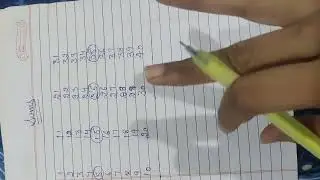 1 11 21 31
2 12 22 32
3 13 23 33
4 14 24 34
5 15 25 35
6 16 26 36
7 17 27 37
8 18 28 38
9 19 29 39
10 20 30